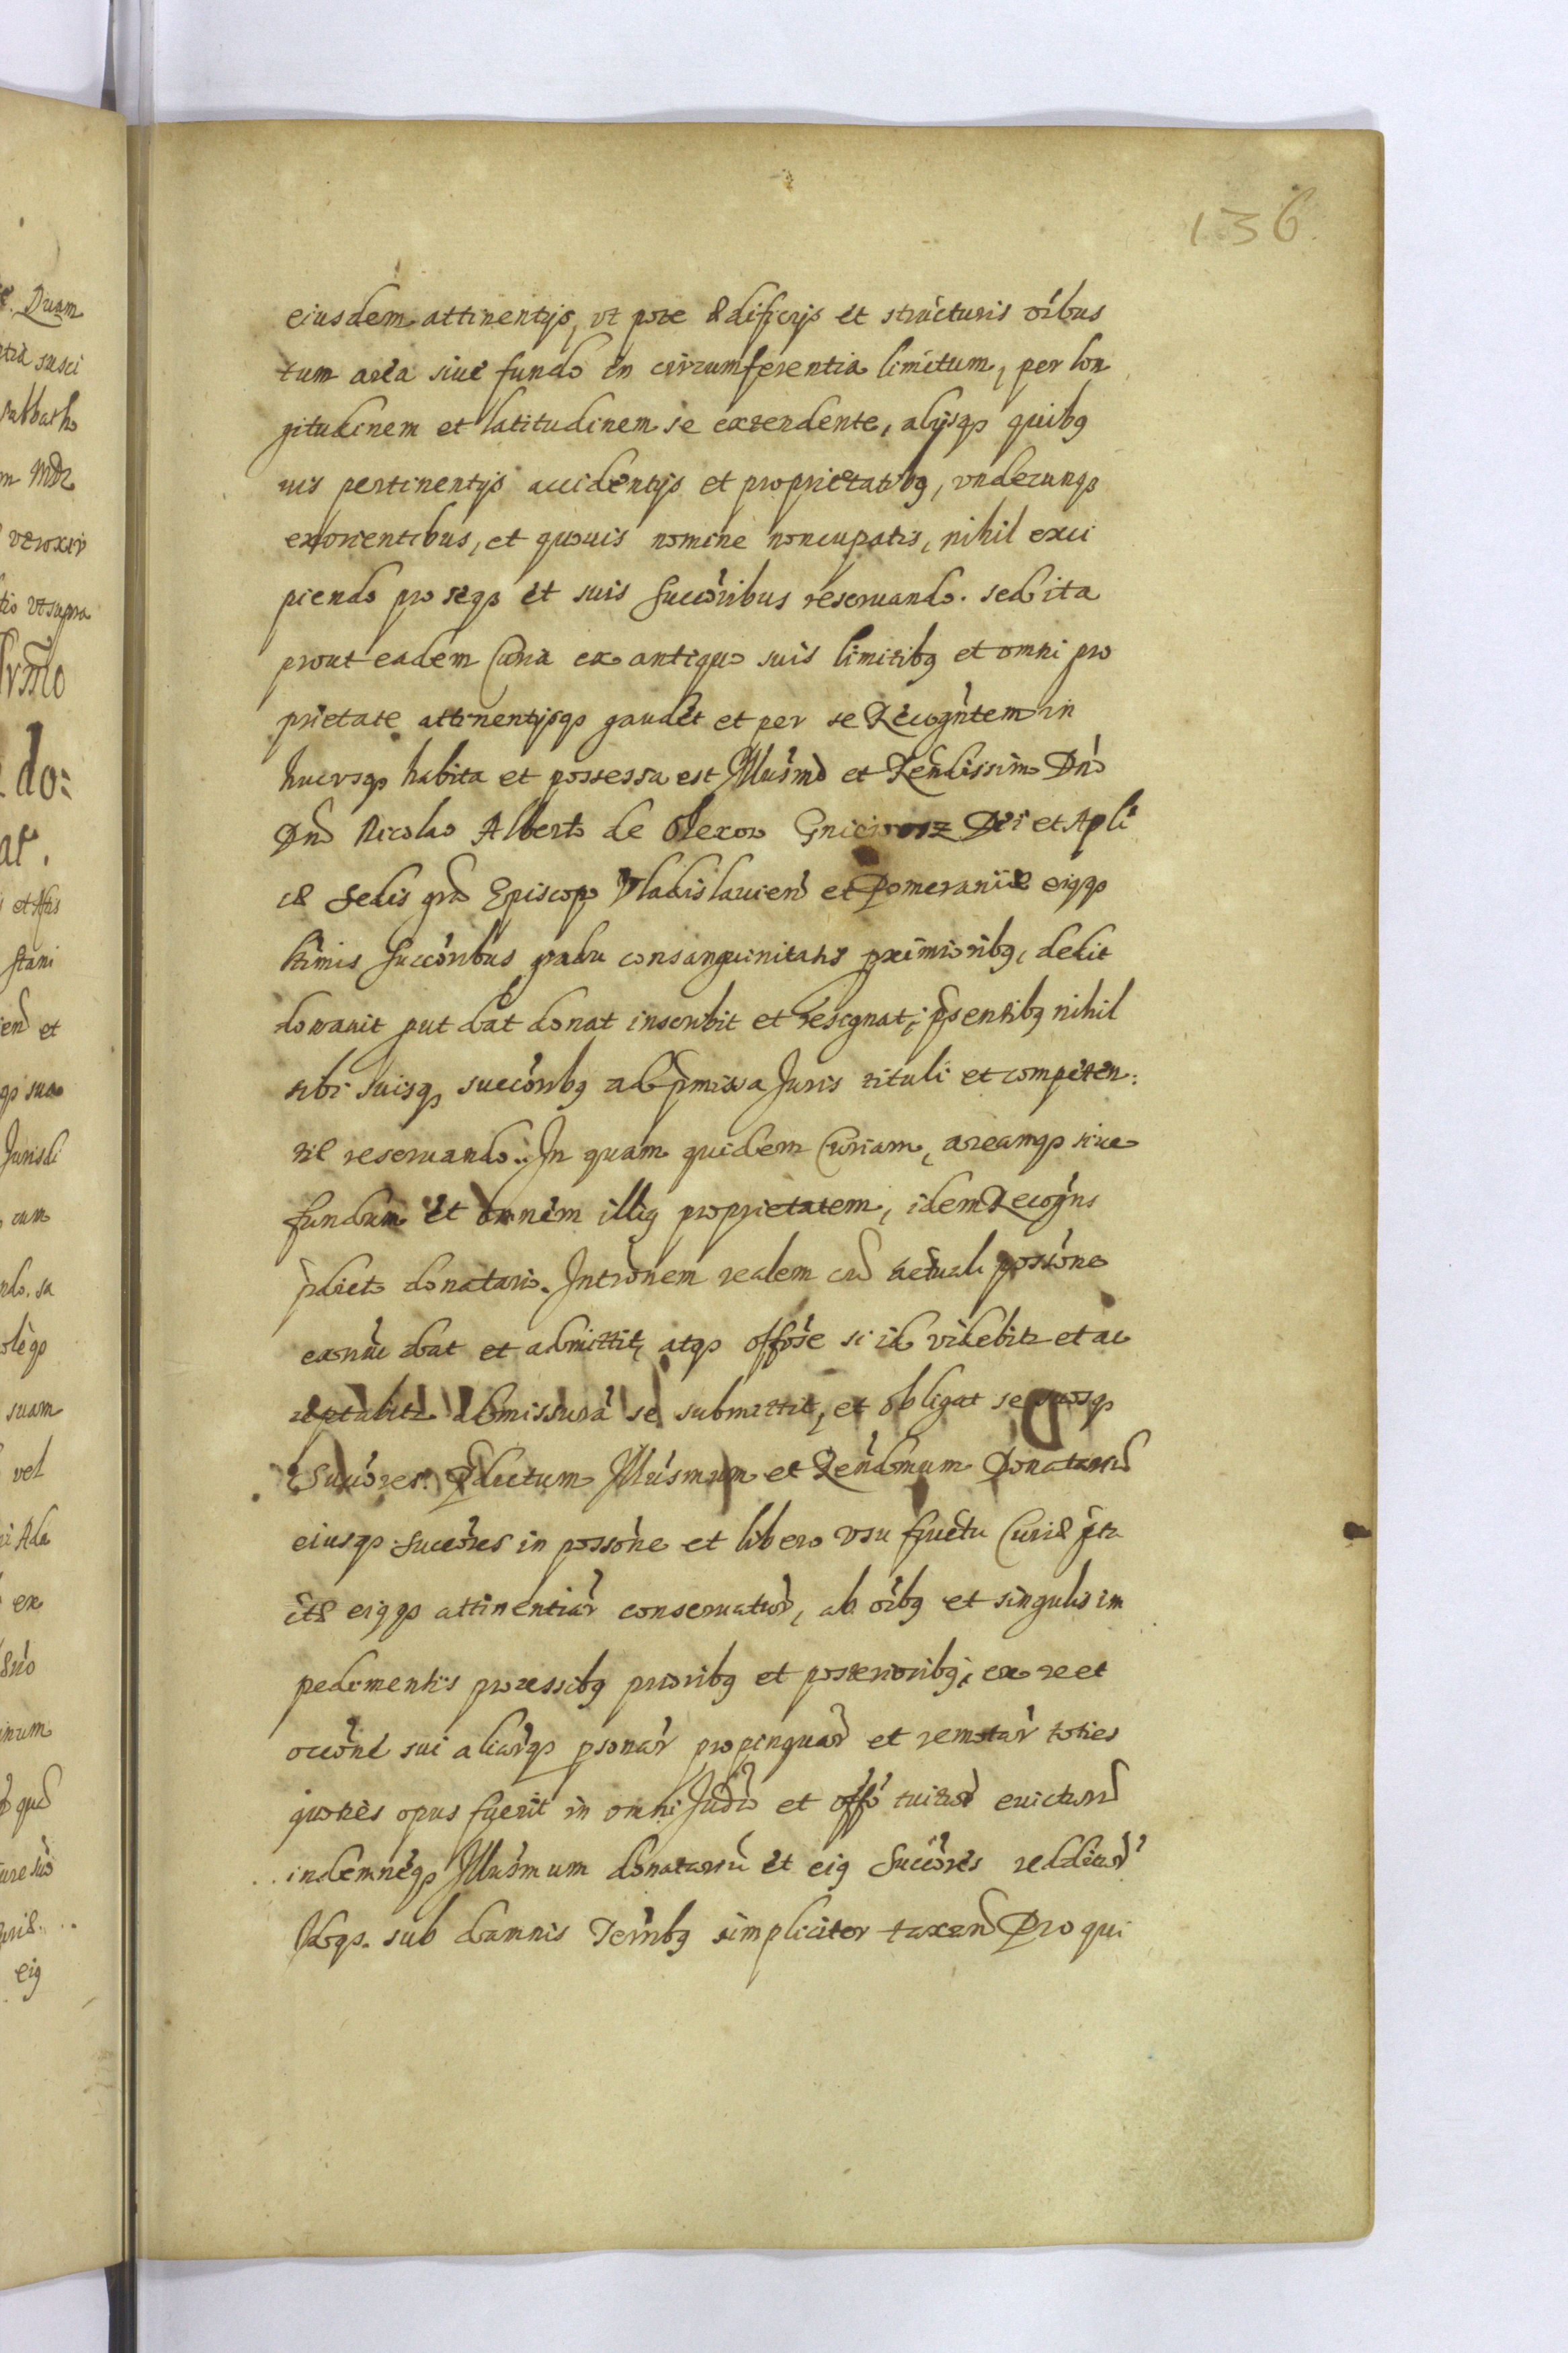 136.
eiusdem attinentijs, vt pote ædificijs et structuris oibus
tum area siue fundo in circumferentia limitum, per lon
gitudinem et latitudinem se extendente, alijsqs quibq
uis pertinentijs accidentijs et proprietatibq, vndecunqs
exorientibus, et quouis nomine noncupatis, nihil exci
piendo pro seqs et suis succoribus reseruando. sed ita
prout eadem Curia ex antiquo suis limitibq et omni pro
prietate attinentijsqs gaudet et per se Recogntem in
hucvsqs habita et possessa est Illusmo et Rendissimo Dno
Dno Nicolao Alberto de Olexow Gniewosz Dei et Apli
cæ Sedis gra Episcopo Vladislauien et Pomeraniæ eiqqs
ltimis succoribus gradu consanguinitatis pximioribq, dedit
donauit put dat donat inscribit et resignat, psentibq nihil
sibi suisqs succoribq ad pmissa Juris tituli et competen:
tiæ reseruando. In quam quidem Curiam, areamqs siue
fundum et omnem illiq proprietatem, idem Recogns
pdicto donatario. Intronem realem cu actuali possione
ex nuc dat et admittit, atqs offose si id videbitr et ac
ceptabitr admissura se submittit, et obligat se suosqs
Succores. Pdictum Illusmum et Rendmum Donatariu
eiusqs succores in possone et libero vsu fructu Curiæ pta
ctæ eiqqs attinentiar conseruatur, ab oibq et singulis im
pedimentis processibq prioribq et posterioribq, ex re et
occone sui aliarqs psonar propinquar et remotar toties
quoties opus fuerit in omni Judo et offo tuitur euictur
indemneqs Illusmum donatariu et eiq Succores redditur
Idqs. sub damnis Ternbq simpliciter taxan Pro qui